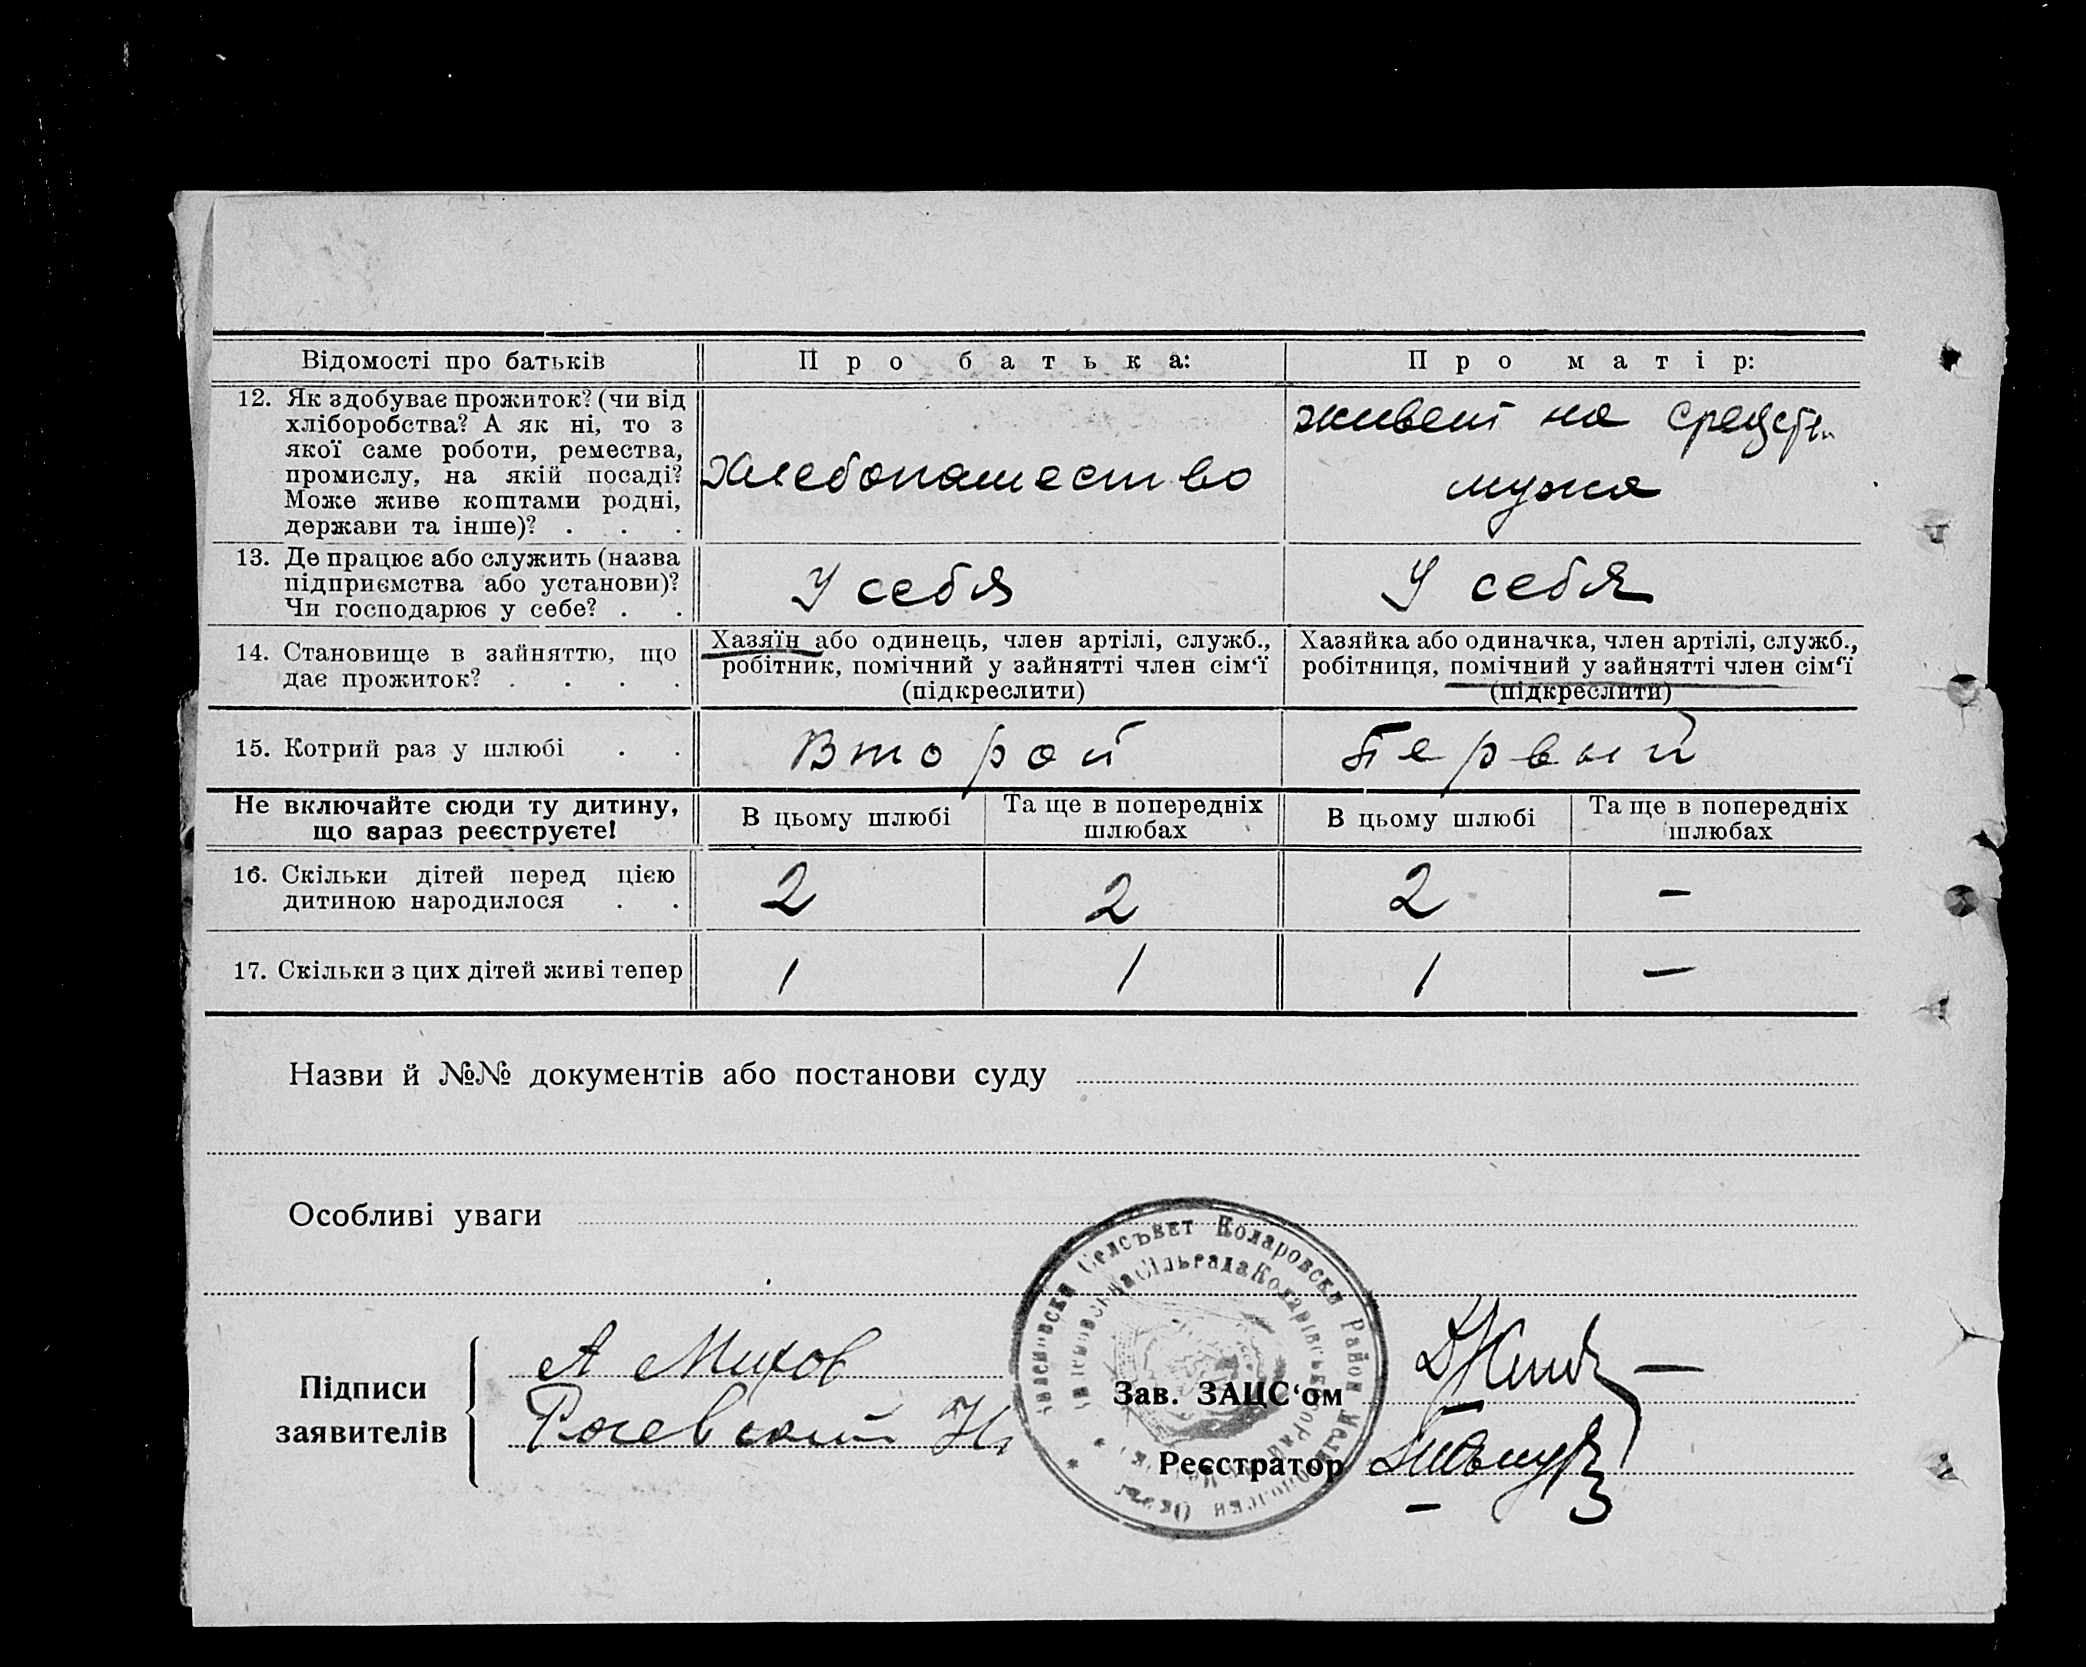 Відомості про батьків
Про батька:
Про матір:
12. Як здобуває прожиток? (чи від
хліборобства? А як ні, то з
якої саме роботи, ремества,
промислу, на якій посаді?
Може живе коштами родні,
держави та інше)? . . .
Хлебопашество
живет на средств.
мужа
13. Де працює або служить (назва
підприємства або установи)?
Чи господарює у себе? . .
У себя
У себя
14. Становище в зайняттю, що
дає прожиток? . . . .
Хазяїн або одинець, член артілі, служб.,
робітник, помічний у зайнятті член сім‘ї
(підкреслити)
Хазяйка або одиначка, член артілі, служб.,
робітниця, помічний у зайнятті член сім‘ї
(підкреслити)
15. Котрий раз у шлюбі . .
Второй
Первый
Не включайте сюди ту дитину,
що зараз реєструєте!
В цьому шлюбі
Та ще в попередніх
шлюбах
В цьому шлюбі
Та ще в попередніх
шлюбах
16. Скільки дітей перед цією
дитиною народилося . .
2
2
2
–
17. Скільки з цих дітей живі тепер
1
1
1
–
Назви й №№ документів або постанови суду
Особливі уваги
Селсъвет Коларовски Район
Сільрада Коларівського Рай
Підписи
заявителів
А Михов
Зав. ЗАЦС‘ом
Реєстратор